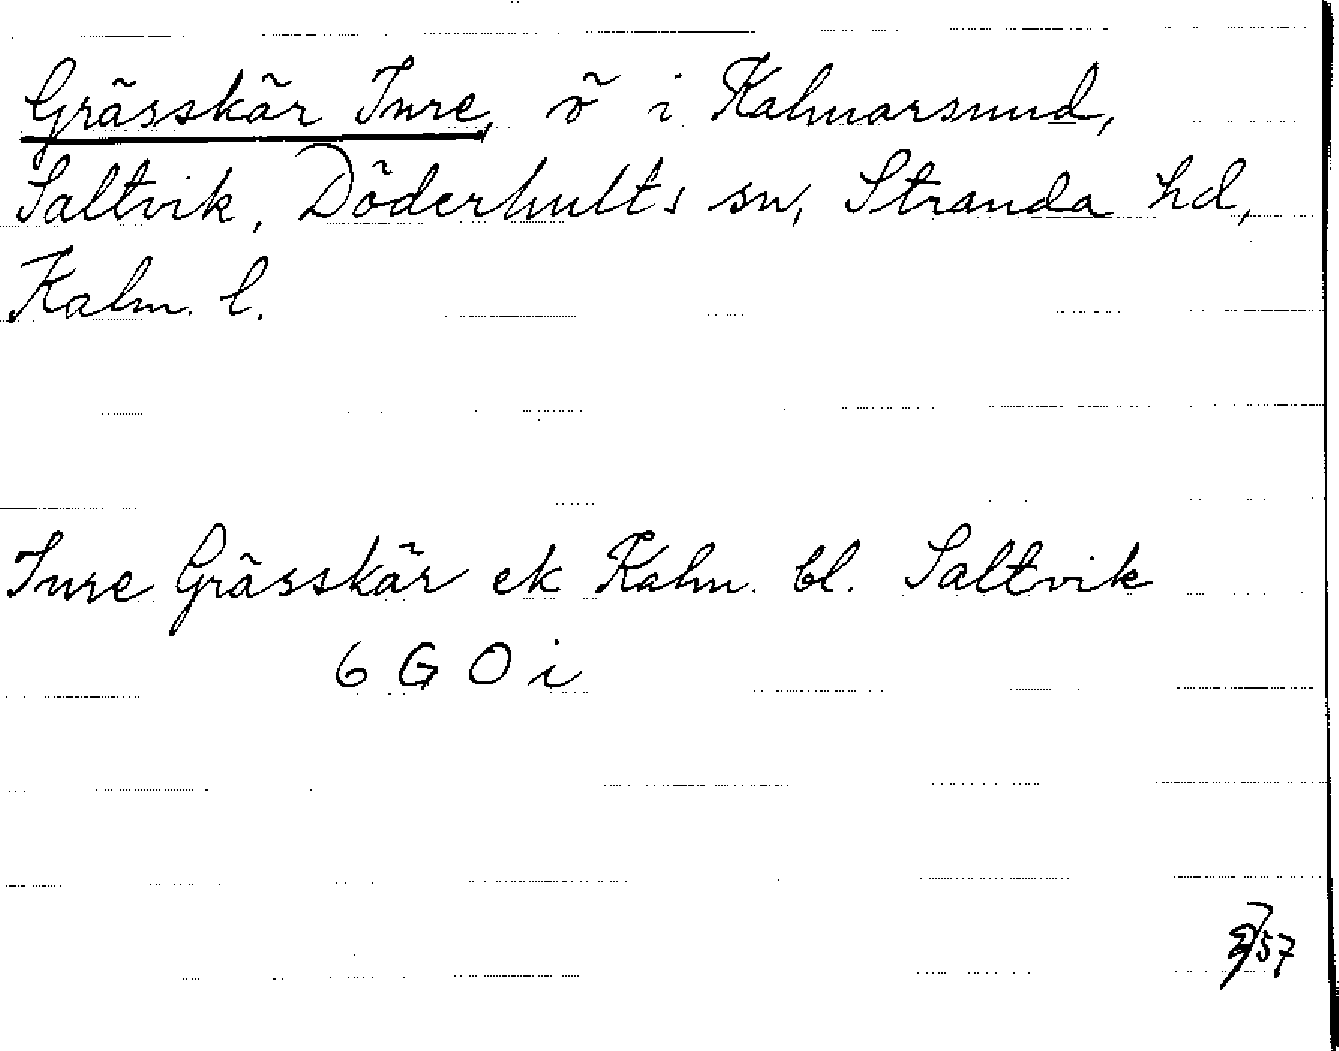 Grässkär Inre, ö i Kalmarsund,
Saltvik, Döderhults sn, Stranda hd,
Kalm. l.
Inre Grässkär ek Kalm. bl. Saltvik
6 G O i
57